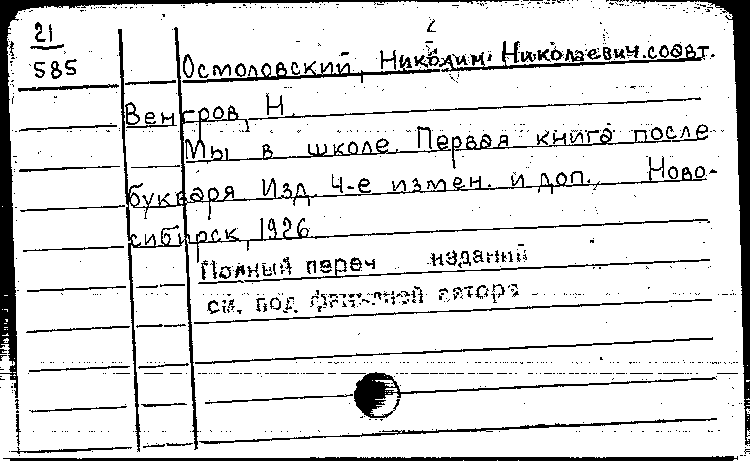 21
585
Осмоловский, Никодим Николаевич. соавт.
Венгров, Н.
Мы в школе. Первая книга после
букваря Изд. 4-е измен. и доп., Ново-
сибирск, 1926.
Полный переч изданий
см. под фамилией автора